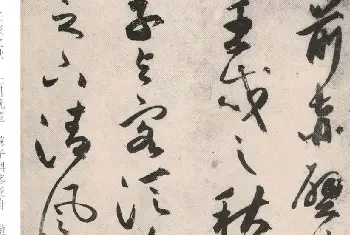 前赤壁
壬戌之秋
子与客泛
之下清風